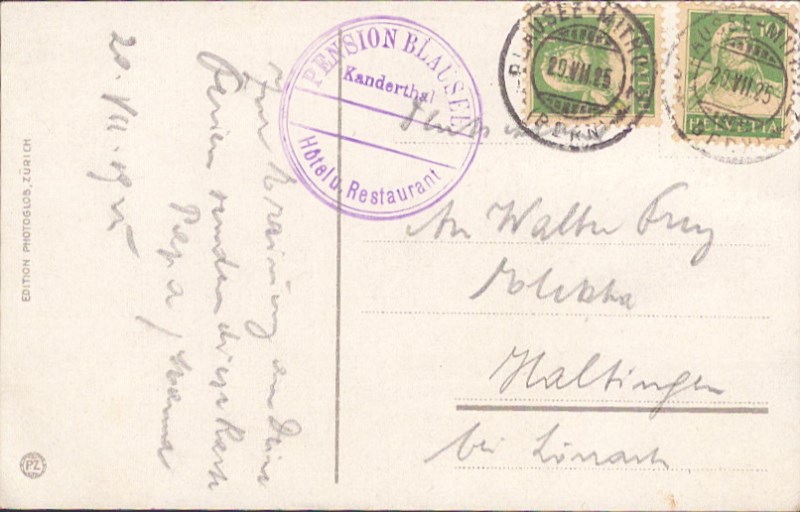 20. VII. 1925
Zur Erinnerung an Deine
Ferien senden diese Karte
Papa / Mama
EDITION PHOTOGLOB, ZÜRICH
PZ
PENSION BLAUSEE
Kanderthal
Hôtel u. Restaurant
BLAUSEE-MITHOLZ
29.VII.25
(BERN)
BLAUSEE-MITHOLZ
29.VII.25
(BERN)
HELVETIA
An Walter Frey
Haltingen
bei Lörrach